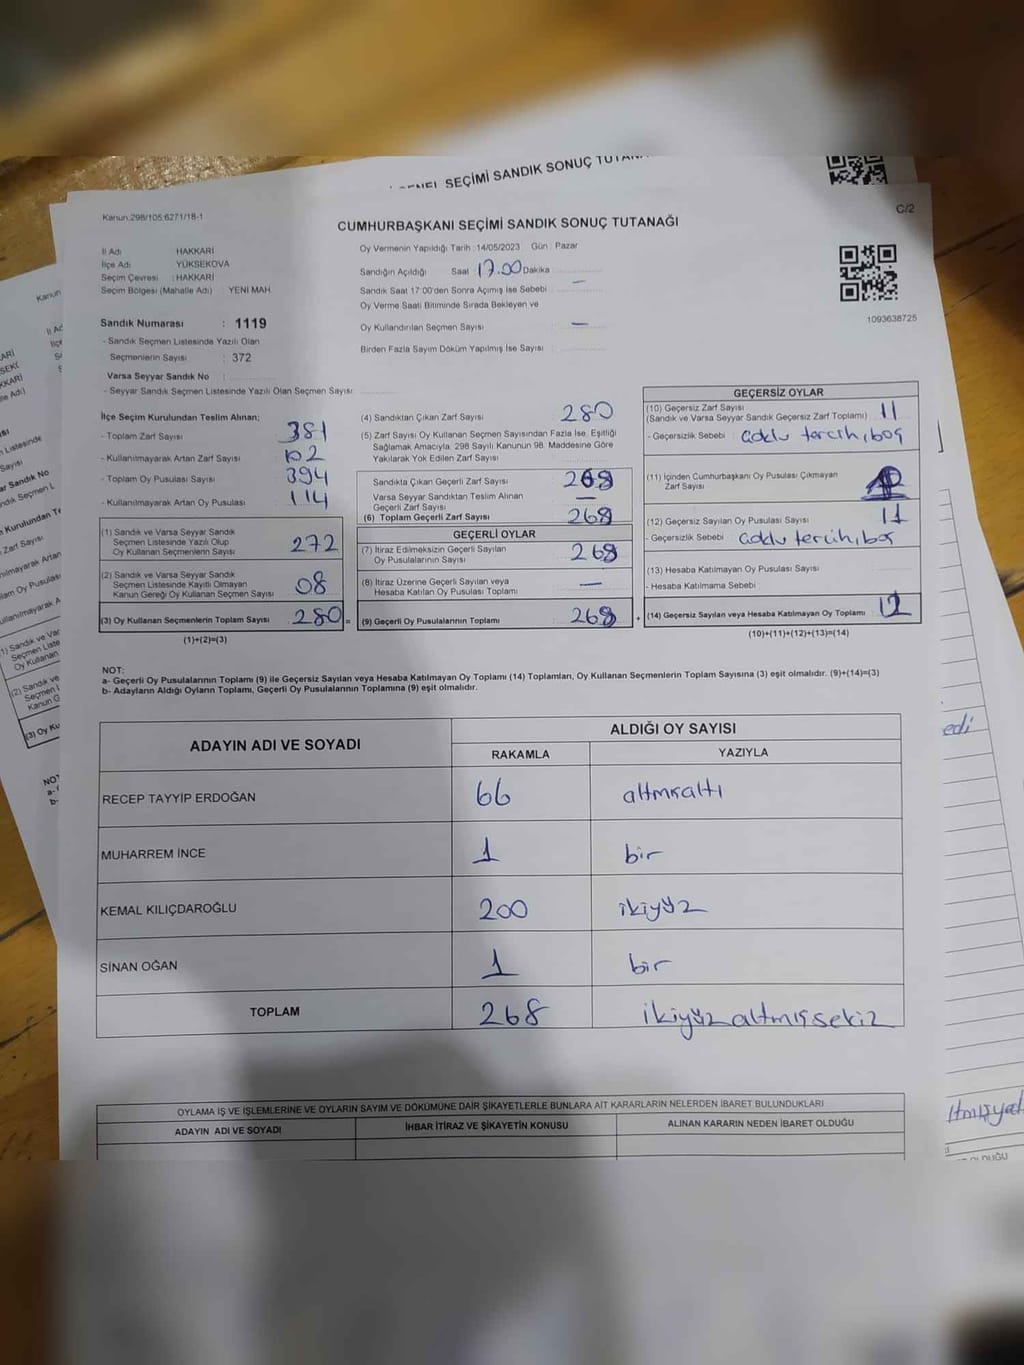 GENEL SEÇİMİ SANDIK SONUÇ TUTANAĞI
Kanun:298/105;6271/18-1
C/2
CUMHURBAŞKANI SEÇİMİ SANDIK SONUÇ TUTANAĞI
İl Adı : HAKKARİ
İlçe Adı : YÜKSEKOVA
Seçim Çevresi : HAKKARİ
Seçim Bölgesi (Mahalle Adı) : YENİ MAH.
Oy Vermenin Yapıldığı Tarih :14/05/2023 Gün : Pazar
Sandığın Açıldığı Saat 17.00 Dakika
Sandık Saat 17:00'den Sonra Açılmış İse Sebebi : —
Oy Verme Saati Bitiminde Sırada Bekleyen ve
Oy Kullandırılan Seçmen Sayısı : —
Birden Fazla Sayım Döküm Yapılmış İse Sayısı :
1093638725
Sandık Numarası : 1119
- Sandık Seçmen Listesinde Yazılı Olan
Seçmenlerin Sayısı : 372
Varsa Seyyar Sandık No :
- Seyyar Sandık Seçmen Listesinde Yazılı Olan Seçmen Sayısı:
İlçe Seçim Kurulundan Teslim Alınan;
- Toplam Zarf Sayısı 381
- Kullanılmayarak Artan Zarf Sayısı 102
- Toplam Oy Pusulası Sayısı 394
- Kullanılmayarak Artan Oy Pusulası 114
(1) Sandık ve Varsa Seyyar Sandık
Seçmen Listesinde Yazılı Olup
Oy Kullanan Seçmenlerin Sayısı 272
(2) Sandık ve Varsa Seyyar Sandık
Seçmen Listesinde Kayıtlı Olmayan
Kanun Gereği Oy Kullanan Seçmen Sayısı 08
(3) Oy Kullanan Seçmenlerin Toplam Sayısı 280 =
(1)+(2)=(3)
(4) Sandıktan Çıkan Zarf Sayısı 280
(5) Zarf Sayısı Oy Kullanan Seçmen Sayısından Fazla İse, Eşitliği
Sağlamak Amacıyla, 298 Sayılı Kanunun 98. Maddesine Göre
Yakılarak Yok Edilen Zarf Sayısı
Sandıkta Çıkan Geçerli Zarf Sayısı 268
Varsa Seyyar Sandıktan Teslim Alınan
Geçerli Zarf Sayısı —
(6) Toplam Geçerli Zarf Sayısı 268
GEÇERLİ OYLAR
(7) İtiraz Edilmeksizin Geçerli Sayılan
Oy Pusulalarının Sayısı 268
(8) İtiraz Üzerine Geçerli Sayılan veya
Hesaba Katılan Oy Pusulası Toplamı —
(9) Geçerli Oy Pusulalarının Toplamı 268 +
GEÇERSİZ OYLAR
(10) Geçersiz Zarf Sayısı
(Sandık ve Varsa Seyyar Sandık Geçersiz Zarf Toplamı) 11
- Geçersizlik Sebebi : çoklu tercih, boş
(11) İçinden Cumhurbaşkanı Oy Pusulası Çıkmayan
Zarf Sayısı
(12) Geçersiz Sayılan Oy Pusulası Sayısı 11
- Geçersizlik Sebebi çoklu tercih, boş
(13) Hesaba Katılmayan Oy Pusulası Sayısı
- Hesaba Katılmama Sebebi
(14) Geçersiz Sayılan veya Hesaba Katılmayan Oy Toplamı 12
(10)+(11)+(12)+(13)=(14)
NOT:
a- Geçerli Oy Pusulalarının Toplamı (9) ile Geçersiz Sayılan veya Hesaba Katılmayan Oy Toplamı (14) Toplamları, Oy Kullanan Seçmenlerin Toplam Sayısına (3) eşit olmalıdır. (9)+(14)=(3)
b- Adayların Aldığı Oyların Toplamı, Geçerli Oy Pusulalarının Toplamına (9) eşit olmalıdır.
ADAYIN ADI VE SOYADI ALDIĞI OY SAYISI
RAKAMLA YAZIYLA
RECEP TAYYİP ERDOĞAN 66 altmışaltı
MUHARREM İNCE 1 bir
KEMAL KILIÇDAROĞLU 200 ikiyüz
SİNAN OĞAN 1 bir
TOPLAM 268 ikiyüzaltmışsekiz
OYLAMA İŞ VE İŞLEMLERİNE VE OYLARIN SAYIM VE DÖKÜMÜNE DAİR ŞİKAYETLERLE BUNLARA AİT KARARLARIN NELERDEN İBARET BULUNDUKLARI
ADAYIN ADI VE SOYADI İHBAR İTİRAZ VE ŞİKAYETİN KONUSU ALINAN KARARIN NEDEN İBARET OLDUĞU